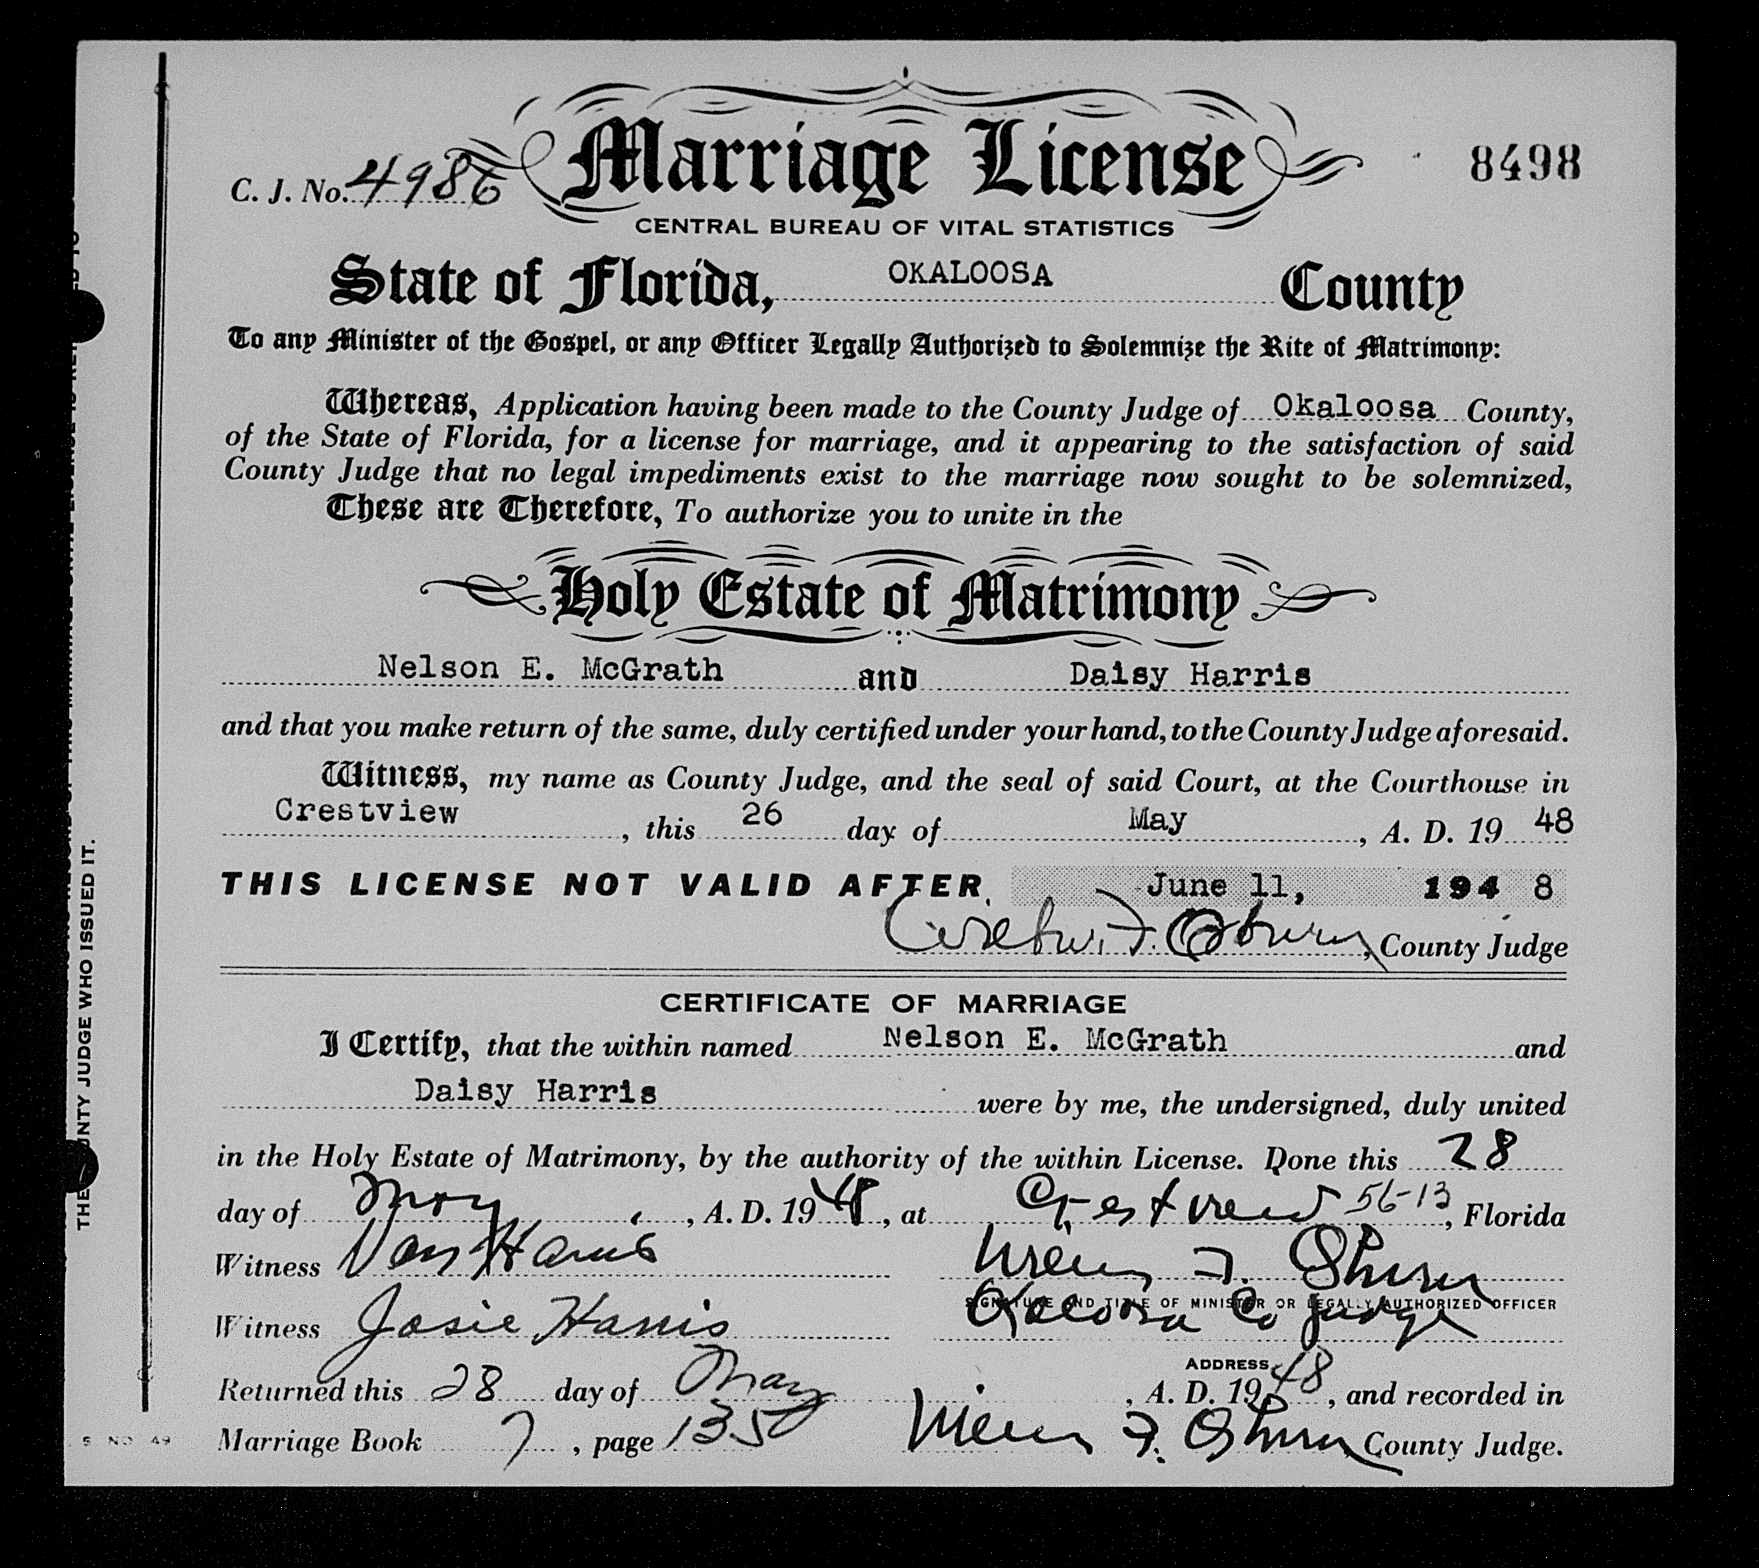 Marriage License
8498
C. J. No. 4986
CENTRAL BUREAU OF VITAL STATISTICS
State of Florida, OKALOOSA County
To any Minister of the Gospel, or any Officer Legally Authorized to Solemnize the Rite of Matrimony:
Whereas, Application having been made to the County Judge of Okaloosa County,
of the State of Florida, for a license for marriage, and it appearing to the satisfaction of said
County Judge that no legal impediments exist to the marriage now sought to be solemnized,
These are Therefore, To authorize you to unite in the
Holy Estate of Matrimony
Nelson E. McGrath and Daisy Harris
and that you make return of the same, duly certified under your hand, to the County Judge aforesaid.
Witness, my name as County Judge, and the seal of said Court, at the Courthouse in
Crestview, this 26 day of May, A. D. 19 48
THIS LICENSE NOT VALID AFTER June 11, 194 8
County Judge
CERTIFICATE OF MARRIAGE
I Certify, that the within named Nelson E. McGrath and
Daisy Harris were by me, the undersigned, duly united
in the Holy Estate of Matrimony, by the authority of the within License. Done this 28
day of May, A. D. 19 48, at Crestview 56-13, Florida
Witness Harris
SIGNATURE AND TITLE OF MINISTER OR LEGALLY AUTHORIZED OFFICER
Witness Josie Harris Okaloosa Co Judge
ADDRESS
Returned this 28 day of May, A. D. 19 48, and recorded in
Marriage Book 7, page 1350 County Judge.
THE COUNTY JUDGE WHO ISSUED IT.